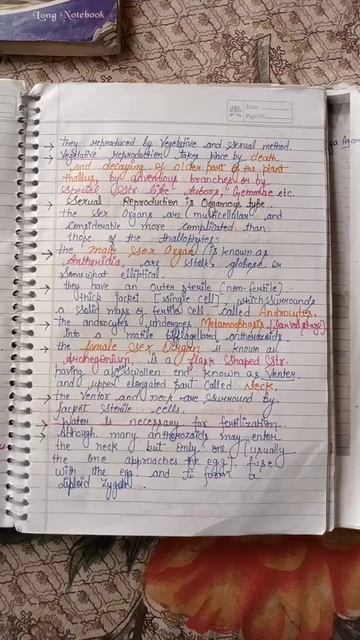 Long Notebook
Date
Page No.
→ they reproduced by vegetative and sexual method.
→ Vegetative reproduction takes place by death
and decaying of older part of the plant
thallus, by adventious branches or by
special str. like tubors, Gemmae etc.
→ Sexual Reproduction is Oogamous type.
→ the sex organs are (multicellular and
considerable more complicated than
those of the thallophytes.
→ the male sex organ (is known as
Antheridia, are stalk, globose or
somewhat elliptical.
→ they have an outer sterile (non-fertile)
thick jacket [single cell], which surrounds
a solid mass of fertile cell called Androcytes.
→ the androcytes undergoes Metamorphosis [larval stage]
into a motile antherozoids
→ the female sex Organ is known as
Archegonium, is a flask shaped str.
having a swollen end known as Venter
and upper elongated part called neck.
→ the Ventor and neck are surround by
jacket sterile cells.
→ Water is necessary for fertilization.
→ Although many antherozoids may enter
the neck but only one [usually
the one approaches the egg]. fuse
with the egg and to form a
diploid zygote.